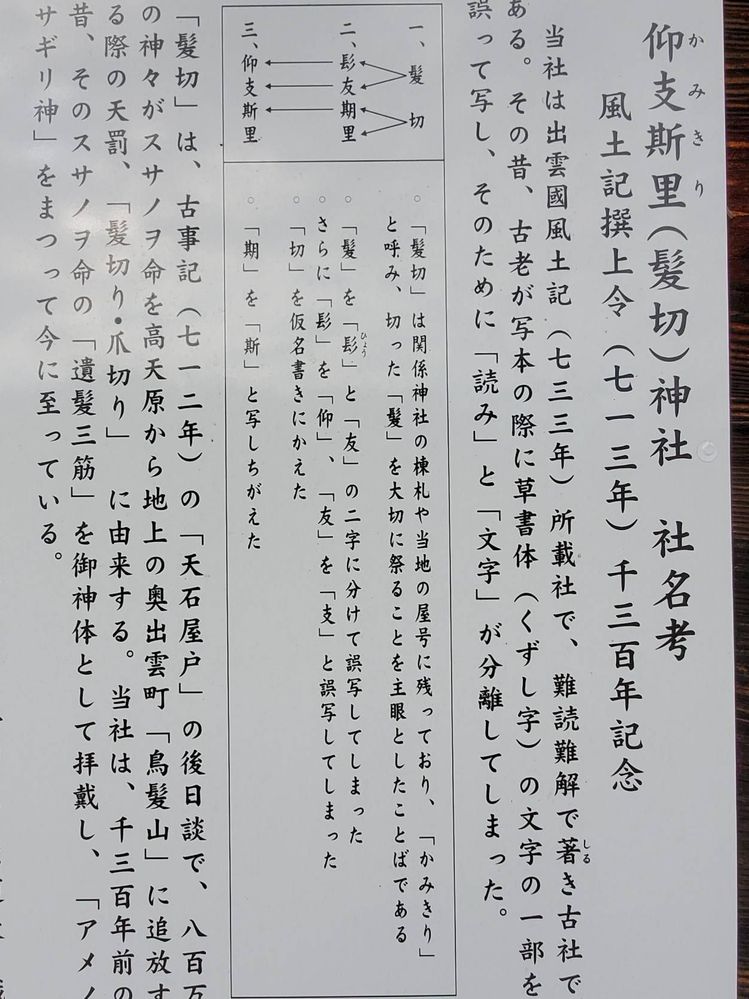 仰支斯里（髪切）神社　社名考
かみきり
風土記撰上令（七一三年）千三百年記念
当社は出雲國風土記（七三三年）所載社で、難読難解で著き古社で
しる
ある。その昔、古老が写本の際に草書体（くずし字）の文字の一部を
誤って写し、そのために「読み」と「文字」が分離してしまった。
一、髪　切
二、髟友期里
三、仰支斯里
○「髪切」は関係神社の棟札や当地の屋号に残っており、「かみきり」
と呼み、切った「髪」を大切に祭ることを主眼としたことばである
○「髪」を「髟」と「友」の二字に分けて誤写してしまった
ひょう
さらに「髟」を「仰」、「友」を「支」と誤写してしまった
○「切」を仮名書きにかえた
○「期」を「斯」と写しちがえた
「髪切」は、古事記（七一二年）の「天石屋戸」の後日談で、八百万
の神々がスサノヲ命を高天原から地上の奥出雲町「鳥髪山」に追放す
る際の天罰、「髪切り・爪切り」に由来する。当社は、千三百年前の
昔、そのスサノヲ命の「遺髪三筋」を御神体として拝戴し、「アメノ
サギリ神」をまつって今に至っている。